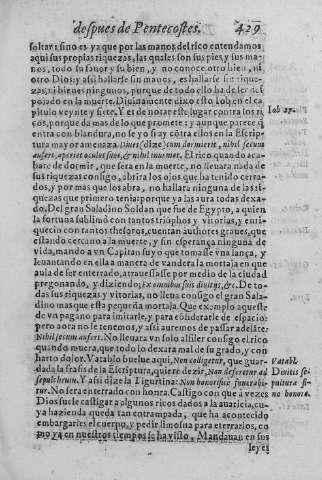 despues de Pentecostes. 429
soltar: sino es ya que por las manos del rico entendamos
aqui sus propias riquezas, las quales son sus pies, y sus ma-
nos, todo su fauor y su bien, y no conoce otro bien, ni
otro Dios: y assi hallarse sin manos, es hallarse sin rique-
zas, ni bienes ningunos, porque de todo ello ha de ser des-
pojado en la muerte. Diuinamente dixo esto Iob, en el ca-
pitulo veynte y siete. Y es de notar este lugar contra los ri- Iob 27.
cos, porque da mas de lo que promete: y aunque parece q̃
entra con blandura, no se yo si ay cõtra ellos en la Escrip-
tura mayor amenaza. Diues (dize) cum dormierit, nihil secum
auferet, aperiet oculos suos, & nihil inueniet. El rico quando aca-
bare de dormir, que sera en la muerte, no lleuara nada de
sus riquezas consigo, abrira los ojos que ha tenido cerra-
dos, y por mas que los abra, no hallara ninguna de las ri-
quezas que primero tenia: porque ya las aura todas dexa-
do. Del gran Saladino Soldan que fue de Egypto, a quien
la fortuna sublimó con tantos triũphos y vitorias, y enri-
quecio con tantos thesoros, cuentan authores graues, que
estando cercano a la muerte, y sin esperança ninguna de
vida, mando a vn Capitan suyo que tomasse vna lança, y
leuantando en ella a manera de vandera la mortaja en que
auia de ser enterrado, atrauessasse por medio de la ciudad
pregonando, y diziendo; Ex omnibus suis diuitijs, &c. De to-
das sus riquezas y vitorias, no lleua consigo el gran Sala-
dino mas que esta pequeña mortaja. Que exemplo aqueste
de vn pagano para imitarle, y para cõsiderarle de espacio:
pero aora no le tenemos, y assi auremos de passar adelãte.
Nihil secum auferet. No lleuara vn solo alfiler consigo el rico
quando muera, que todo lo dexara mal de su grado, y con
harto dolor. Vatablo buelue aqui, Non colligetur, que guar- Vatabl.
dada la frasis de la Escriptura, quiere dezir, Non deferetur ad Diuitis se-
sepulchrum. Y assi dize la Tigurina: Non honorifice funerabi- pultura si-
tur. No sera enterrado con honra. Castigo con que a vezes ne honore.
Dios suele castigar a algunos ricos dados a la auaricia, cu-
ya hazienda queda tan entrampada, que ha acontecido
embargarles el cuerpo, y pedir limosna para eterrarlos, co
mo ya en nuestros tiempos se ha visto. Mandauan en sus
leyes